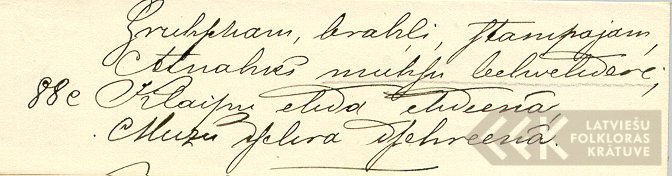 Gruhscham, brahli, stampajam,
Atnahks muhsu behrtulderi;
88c Klaipu ehda ehdeena,
Muzu dsehra dsehreena.
LATVIEŠU
FOLKLORAS
KRĀTUVE